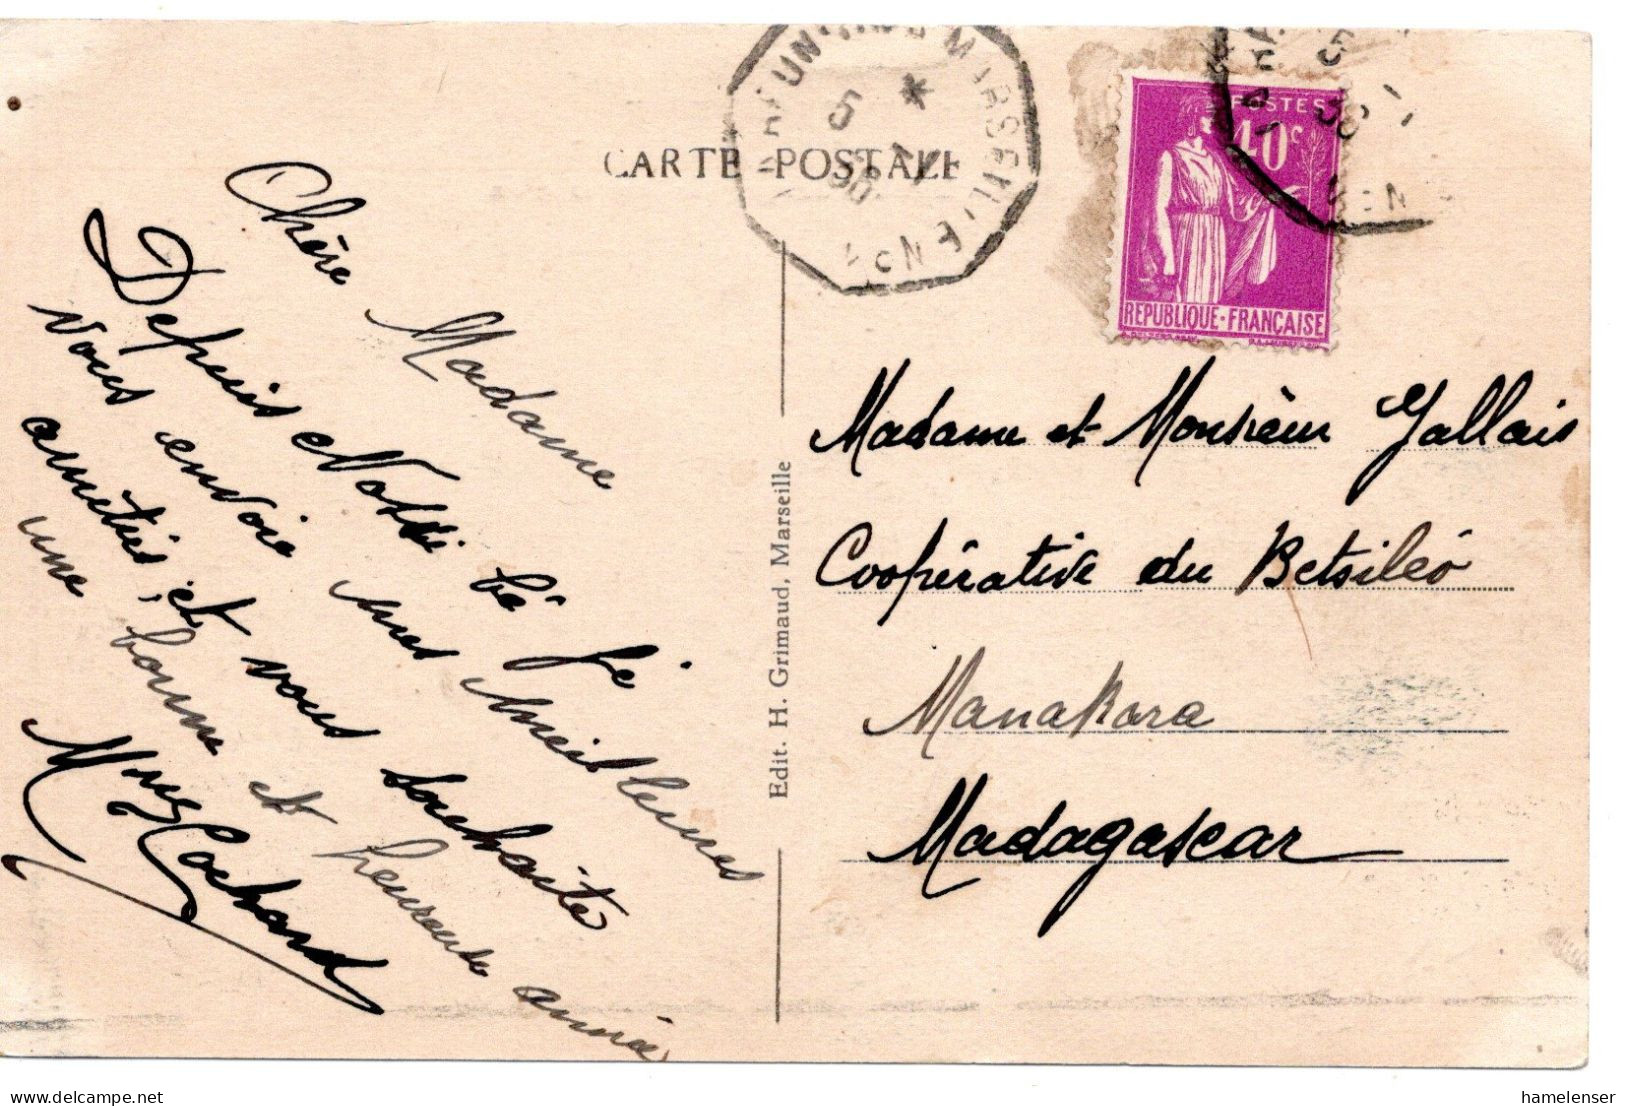 CARTE POSTALE
Chère Madame
Depuis Nossi bé je
vous envoie mes meilleures
amitiés, et vous souhaite
une bonne et heureuse année
Cochard
Edit. H. Grimaud, Marseille
LA REUNION A MARSEILLE
5 * 1
36
POSTES
40c
REPUBLIQUE-FRANÇAISE
5 1
36
Madame et Monsieur Gallais
Coopérative du Betsiléo
Manakara
Madagascar
hamelenser